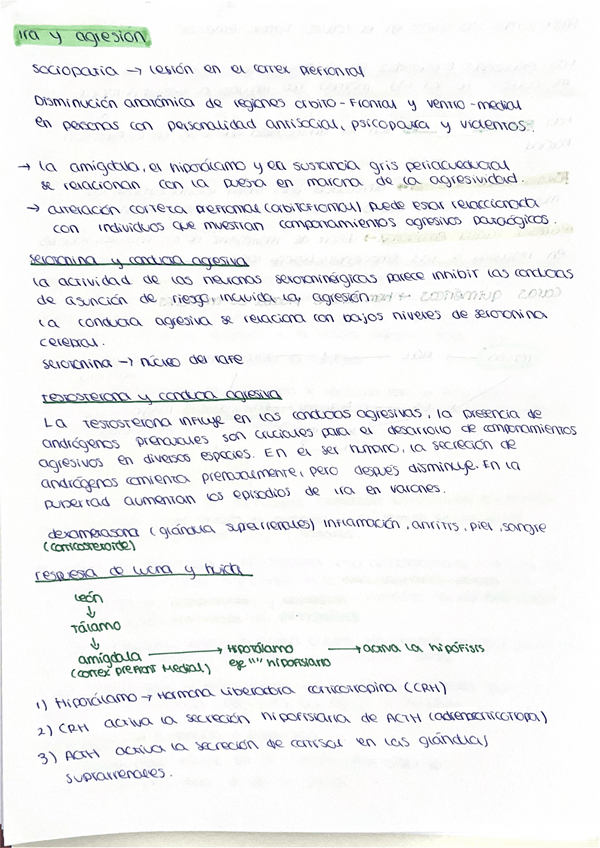 Ira y agresión
sociopatia → lesión en el cortex prefrontal
Disminución anatómica de regiones orbito-frontal y ventro-medial
en personas con personalidad antisocial, psicopatia y violentos.
→ la amigdala, el hipotálamo y en sustancia gris periacueductal
se relacionan con la puesta en marcha de la agresividad.
→ alteración corteza prefrontal (orbitofrontal) puede estar relaccionada
con individuos que muestran comportamientos agresivos patológicos.
serotonina y conducta agresiva
la actividad de las neuronas serotoninérgicas parece inhibir las conductas
de asunción de riesgo, incluida la agresión.
la conducta agresiva se relaciona con bajos niveles de serotonina
cerebral.
serotonina → núcleo del rafe
testosterona y conducta agresiva
La testosterona influye en las conductas agresivas, la presencia de
andrógenos prenatales son cruciales para el desarrollo de comportamientos
agresivos en diversas especies. En el ser humano, la secreción de
andrógenos comienta prenatalmente, pero después disminuye. En la
pubertad aumentan los episodios de ira en varones.
dexametasona (glándula suprarrenales) inflamación, artritis, piel, sangre
(corticosteroide)
respuesta de lucha y huida
león
↓
Tálamo
↓
amígdala → Hipotálamo → activa la hipófisis
(cortex prefront Medial) eje "" hipofisiario
1) Hipotálamo → Hormona liberadora corticotropina (CRH)
2) CRH activa la secreción hipofisiaria de ACTH (adrenocorticotropa)
3) ACTH activa la secreción de cortisol en las glándulas
suprarrenales.